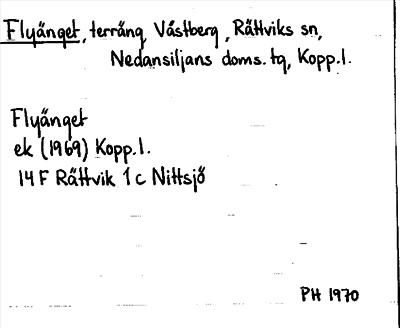 Flyänget, terräng Västberg, Rättviks sn,
Nedansiljans doms. tg, Kopp.l.
Flyänget
ek (1969) Kopp.l.
14 F Rättvik 1 c Nittsjö
PH 1970